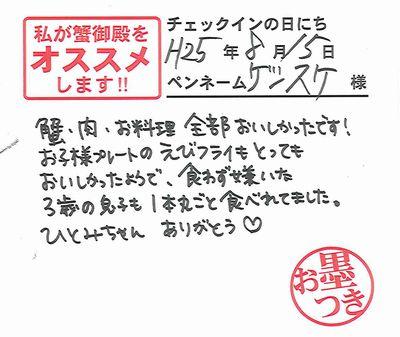 私が蟹御殿を
オススメ
します!!
チェックインの日にち
H25年8月15日
ペンネーム ゲンスケ 様
蟹・肉・お料理 全部おいしかったです!
お子様プレートのえびフライもとっても
おいしかったようで、食わず嫌いた
3歳の息子も1本丸ごと食べれてました。
ひとみちゃん ありがとう♡
お墨つき